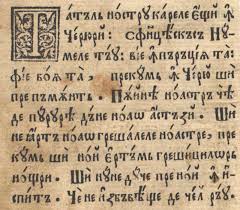 Татъль ностру кареле ещй ꙟ
Черюри: Сфинцѣскъсъ Ну
меле тъу: віе ꙟпъръціа та
фіе воѧ та, прекумь ꙟ Черю ши
пре пъмѫнть. Пѫйнѣ ноастръ чѣ
де пурурѣ дъне ноаѡ астъзй. Ши
не ꙗртъ ноаѡ грешалеле ноастре, пре
кумь ши ной ертъмь грешицилѡрь
нощри. Ши ну не дуче пре ной ꙟ и
спитъ. Че не избъвѣще де чел ръу.